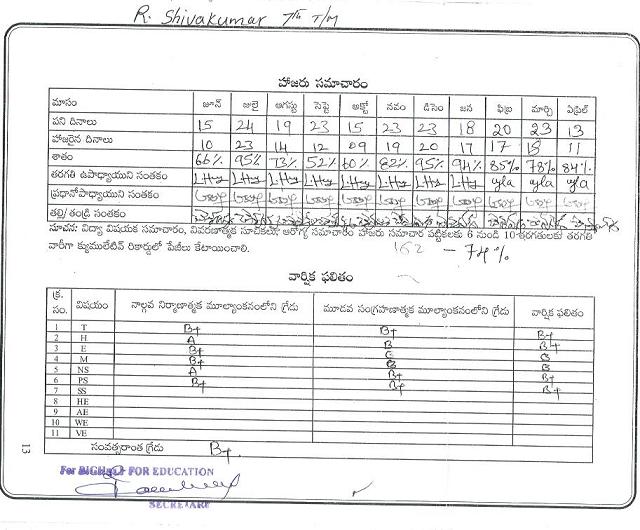 R. Shivakumar 7th T/M
హాజరు సమాచారం
మాసం జూన్ జులై ఆగస్టు సెప్టె అక్టో నవం డిసెం జన ఫిబ్ర మార్చి ఏప్రిల్
పని దినాలు 15 24 19 23 15 23 23 18 20 23 13
హాజరైన దినాలు 10 23 14 12 09 19 20 17 17 18 11
శాతం 66% 95% 73% 52% 60% 82% 95% 94% 85% 78% 84%
తరగతి ఉపాధ్యాయుని సంతకం
ప్రధానోపాధ్యాయుని సంతకం
తల్లి/తండ్రి సంతకం
సూచన: విద్యా విషయక సమాచారం, వివరణాత్మక సూచికలు, ఆరోగ్య సమాచారం హాజరు సమాచార పట్టికలకు 6 నుండి 10 తరగతులకు తరగతి
వారీగా క్యుములేటివ్ రికార్డులో పేజీలు కేటాయించాలి. 162 - 74%
వార్షిక ఫలితం
క్ర. సం. విషయం నాల్గవ నిర్మాణాత్మక మూల్యాంకనంలోని గ్రేడు మూడవ సంగ్రహణాత్మక మూల్యాంకనంలోని గ్రేడు వార్షిక ఫలితం
1 T B+ B+ B+
2 H A B B+
3 E B+ C C
4 M B+ B B
5 NS A B+ B+
6 PS B+ B+ B+
7 SS
8 HE
9 AE
10 WE
11 VE
సంవత్సరాంత గ్రేడు B+
13
For FOR EDUCATION
SECRETARY